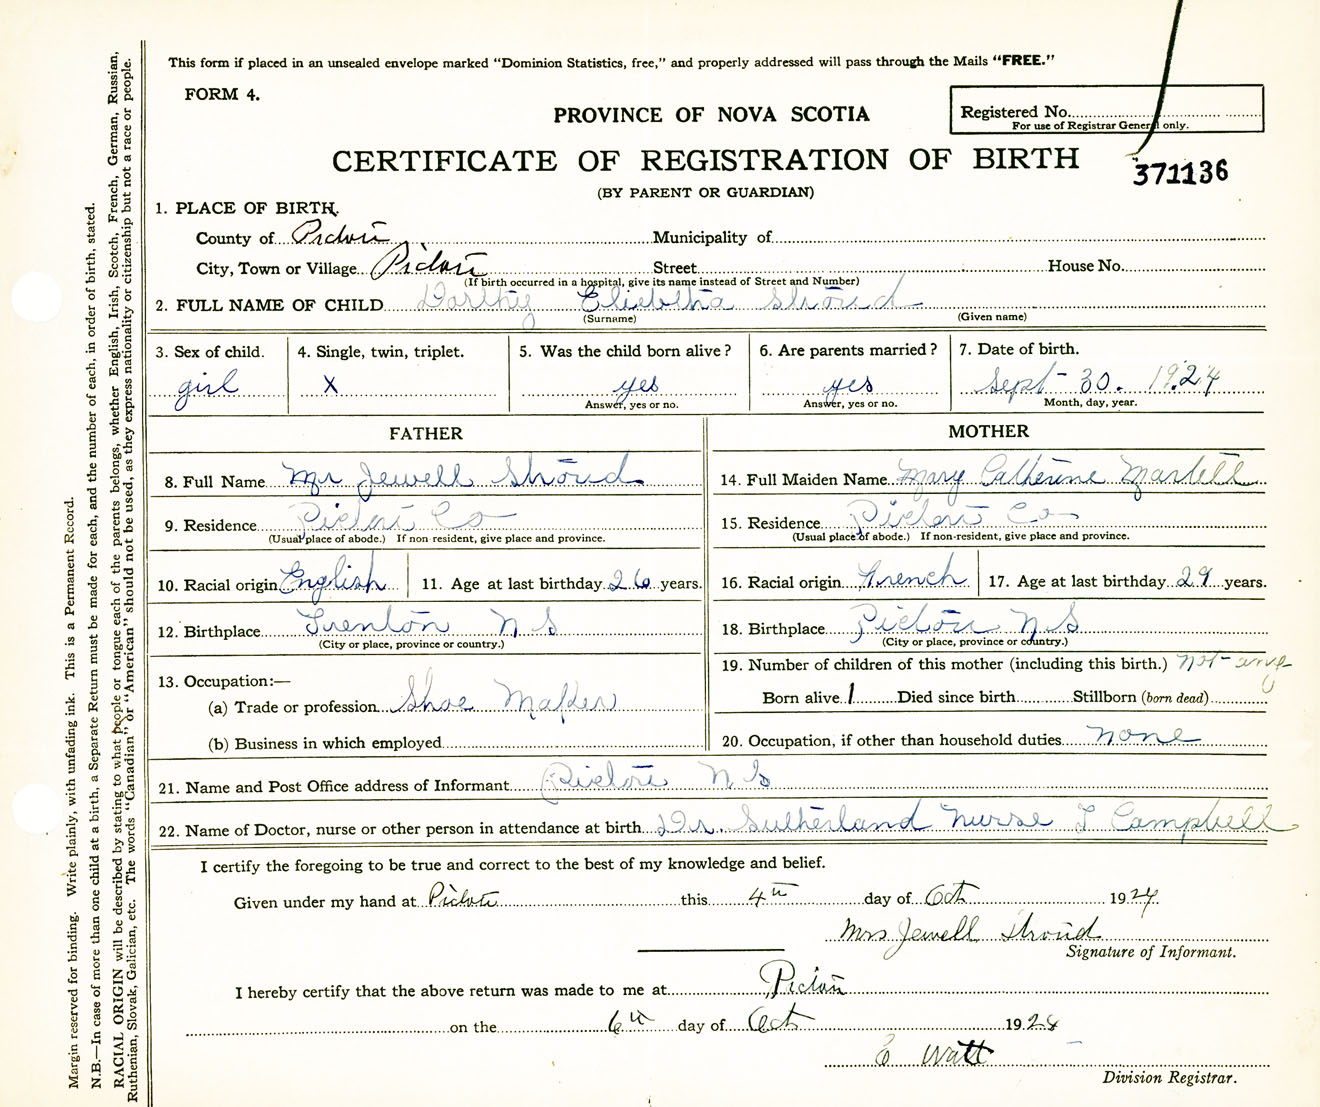 This form if placed in an unsealed envelope marked "Dominion Statistics, free," and properly addressed will pass through the Mails "FREE."
FORM 4.
PROVINCE OF NOVA SCOTIA
Registered No.
For use of Registrar General only.
CERTIFICATE OF REGISTRATION OF BIRTH
371136
(BY PARENT OR GUARDIAN)
1. PLACE OF BIRTH.
County of Pictou Municipality of
City, Town or Village Pictou Street House No.
(If birth occurred in a hospital, give its name instead of Street and Number)
2. FULL NAME OF CHILD Stroud
(Surname) (Given name)
3. Sex of child. 4. Single, twin, triplet. 5. Was the child born alive? 6. Are parents married? 7. Date of birth.
girl X yes yes Sept 30. 1924
Answer, yes or no. Answer, yes or no. Month, day, year.
FATHER MOTHER
8. Full Name Mr Jewell Stroud 14. Full Maiden Name Mary Catherine Martell
9. Residence Pictou Co 15. Residence Pictou Co
(Usual place of abode.) If non-resident, give place and province. (Usual place of abode.) If non-resident, give place and province.
10. Racial origin English 11. Age at last birthday 26 years. 16. Racial origin French 17. Age at last birthday 29 years.
12. Birthplace Trenton N S 18. Birthplace Pictou N S
(City or place, province or country.) (City or place, province or country.)
19. Number of children of this mother (including this birth.) not any
13. Occupation:—
(a) Trade or profession Shoe Maker Born alive 1 Died since birth Stillborn (born dead)
(b) Business in which employed 20. Occupation, if other than household duties none
21. Name and Post Office address of Informant Pictou N S
22. Name of Doctor, nurse or other person in attendance at birth Dr. Sutherland Nurse T Campbell
I certify the foregoing to be true and correct to the best of my knowledge and belief.
Given under my hand at Pictou this 4th day of Oct 1924
Mrs Jewell Stroud
Signature of Informant.
I hereby certify that the above return was made to me at Pictou
on the 6th day of Oct 192
E Watt
Division Registrar.
Margin reserved for binding. Write plainly, with unfading ink. This is a Permanent Record.
N.B.—In case of more than one child at a birth, a Separate Return must be made for each, and the number of each, in order of birth, stated.
RACIAL ORIGIN will be described by stating to what people or tongue each of the parents belongs, whether English, Irish, Scotch, French, German, Russian,
Ruthenian, Slovak, Galician, etc. The words "Canadian" or "American" should not be used, as they express nationality or citizenship but not a race or people.